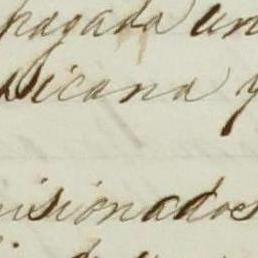 pagada un
icana y
isionados